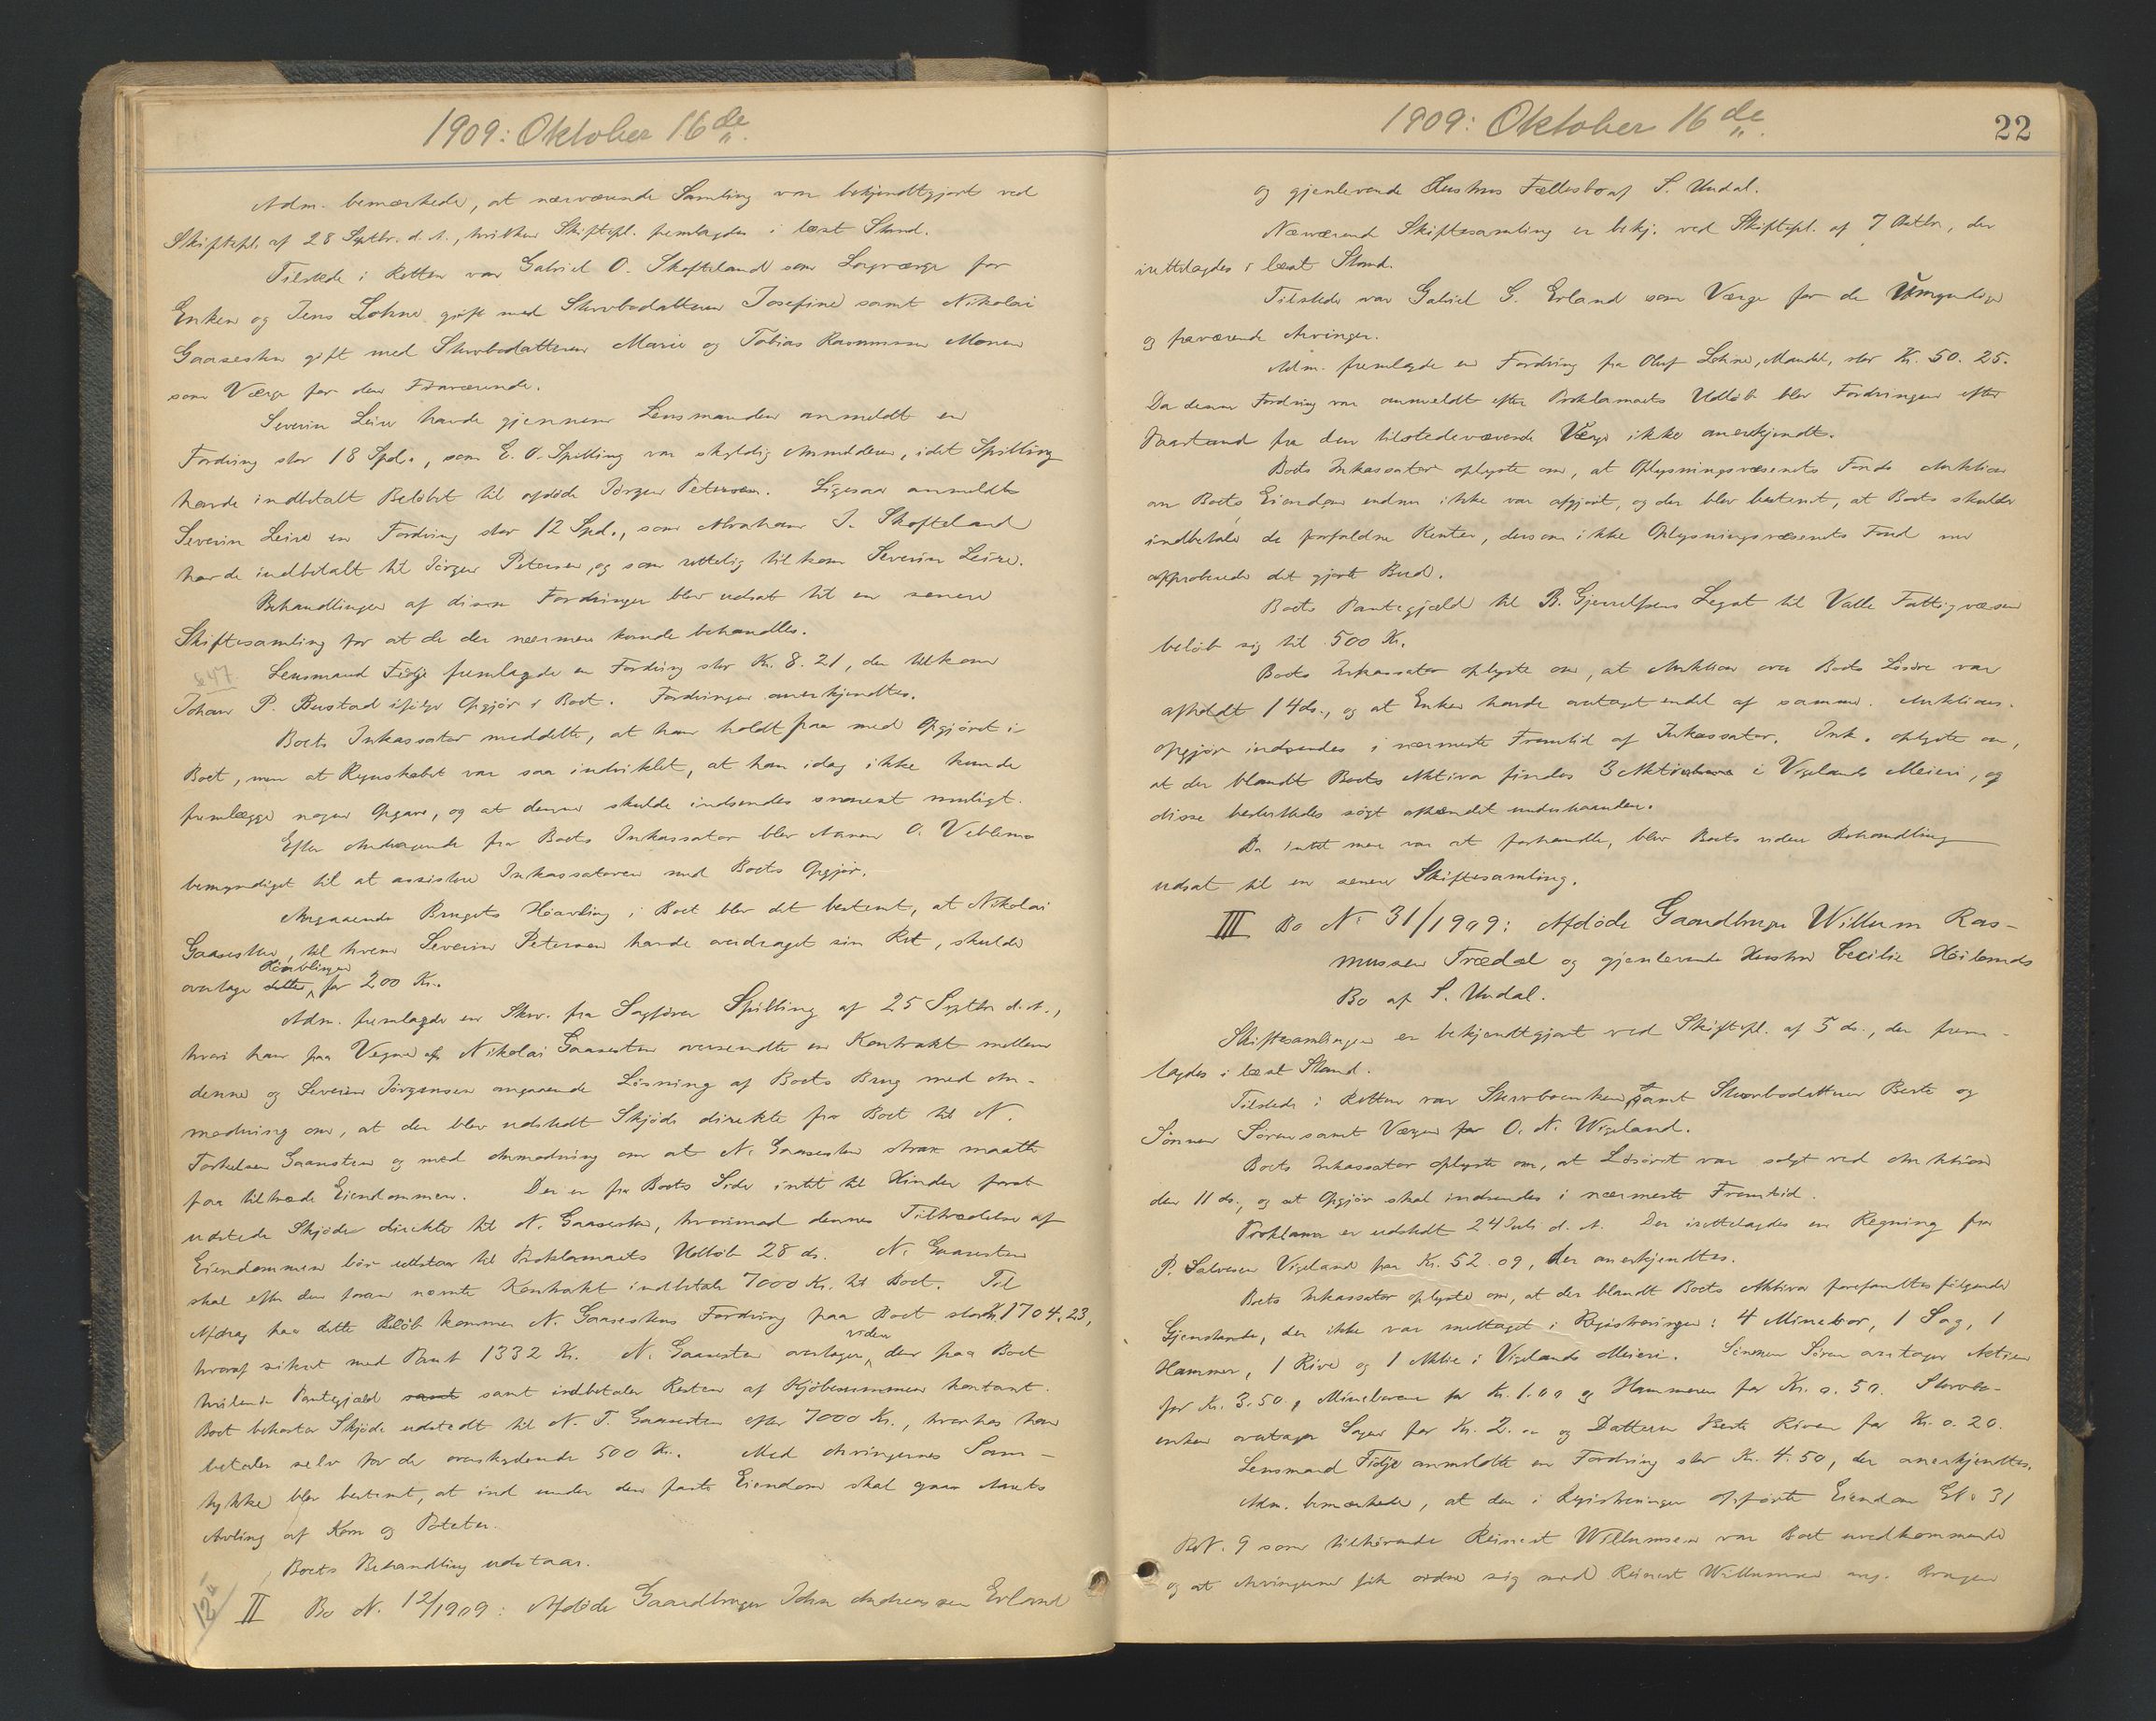 1909: Oktober 16de
Adm. bemærkede, at nærværende Samling var bekjendtgjort ved
Skiftepl. af 28 Septbr. d. A., hvilken Skiftepl. fremlagdes i læst Stand.
Tilstede i Retten var Gabriel O. Skofteland som Lagværge for
Enken og Jens Lohne gift med Stervbodatteren Josefine samt Nikolai
Gaaseston gift med Stervbodatteren Marie og Tobias Rasmussen Monen
som Værge for den Fraværende.
Severin Leire havde gjennem Lensmanden anmeldt en
Fordring stor 18 Spd., som E. O. Spilling var skyldig Anmelderen, idet Spilling
havde indbetalt Beløbet til afdøde Jörgen Petersen. Ligesaa anmeldte
Severin Leire en Fordring stor 12 Spd., som Abraham J. Skofteland
havde indbetalt til Jörgen Petersen, og som rettelig tilkom Severin Leire.
Behandlingen af disse Fordringer blev udsat til en senere
Skiftesamling for at de der nærmere kunde behandles.
Lensmand Fidje fremlagde en Fordring stor Kr. 8.21, der tilkom
Johan P. Bustad ifølge Opgjør i Boet. Fordringen anerkjendtes.
Boets Inkassator meddelte, at han holdt paa med Opgjöret i
Boet, men at Regnskabet var saa indviklet, at han idag ikke kunde
fremlægge nogen Opgave, og at denne skulde indsendes snarest muligt.
Efter Andragende fra Boets Inkassator blev Aanen O. Veblemo
bemyndiget til at assistere Inkassatoren med Boets Opgjør.
Angaaende Brugets Höavling i Boet blev det bestemt, at Nikolai
Gaaseston, til hvem Severin Petersen havde overdraget sin Ret, skulde
Höavlingen
overtage dette for 200 Kr.
Adm. fremlagde en Skr. fra Sagfører Spilling af 25 Septbr d. A.,
hvori han paa Vegne af Nikolai Gaaseston oversendte en Kontrakt mellem
denne og Severin Jörgensen angaaende Lösning af Boets Brug med An-
modning om, at der blev udstedt Skjöde direkte fra Boet til N.
Torkelsen Gaaseston og med Anmodning om at N. Gaaseston strax maatte
faa tiltræde Eiendommen. Der er fra Boets Side intet til Hinder forat
udstede Skjöde direkte til N. Gaaseston, hvorimod dennes Tiltrædelse af
Eiendommen bör udstaa til Proklamaets Udløb 28 ds. N. Gaaseston
skal efter den foran nævnte Kontrakt indbetale 7000 Kr. til Boet. Til
Afdrag paa dette Beløb kommer N. Gaasestons Fordring paa Boet stor Kr. 1704.23,
hvoraf sikret med Pant 1332 Kr. N. Gaaseston overtager videre den paa Boet
hvilende Pantegjæld samt samt indbetaler Resten af Kjöbesummen kontant.
Boet bekoster Skjöde udstedt til N. T. Gaaseston efter 7000 Kr., hvorhos han
betaler selv for de overskydende 500 Kr. Med Arvingernes Sam-
tykke blev bestemt, at ind under den faste Eiendom skal gaa Aarets
Avling af Korn og Poteter.
Boets Behandling udstaar.
II Bo N. 12/1909: Afdöde Gaardbruger John Andreassen Erland
1909: Oktober 16de
22
og gjenlevende Hustrus Fællesbo af S. Undal.
Nærværende Skiftesamling er bekj. ved Skiftepl. af 7 Oktbr, der
irettelagdes i læst Stand.
Tilstede var Gabriel G. Erland som Værge for de Umyndige
og fraværende Arvinger.
Adm. fremlagde en Fordring fra Oluf Lohne, Mandal, stor Kr. 50.25.
Da denne Fordring var anmeldt efter Proklamaets Udløb blev Fordringen efter
Paastand fra den tilstedeværende Værge ikke anerkjendt.
Boets Inkassator oplyste om, at Oplysningsvæsenets Fonds Auktion
over Boets Eiendom endnu ikke var afgjort, og der blev bestemt, at Boets skulde
indbetale de forfaldne Renter, dersom ikke Oplysningsvæsenets Fond nu
approberede det gjorte Bud.
Boets Pantegjæld til B. Gjerrulfsens Legat til Valle Fattigvæsen
beløb sig til 500 Kr.
Boets Inkassator oplyste om, at Auktion over Boets Lösöre var
afholdt 14 ds., og at Enken havde overtaget endel af samme. Auktions-
opgjør indsendes i nærmeste Fremtid af Inkassator. Ink. oplyste om,
at der blandt Boets Aktiva findes 3 Aktiebreve i Vigelands Meieri, og
disse besluttedes sögt afhændet underhaanden.
Da intet mere var at forhandle, blev Boets videre Behandling
udsat til en senere Skiftesamling.
III Bo No 31/1909: Afdöde Gaardbruger Willum Ras-
mussen Trædal og gjenlevende Hustru Cecilie Höilands
Bo af S. Undal.
Skiftesamlingen er bekjendtgjort ved Skiftepl. af 5 ds., der frem-
lagdes i læst Stand.
Tilstede i Retten var Stervboenken, samt Stervbodatteren Berte og
Sönnen Sören samt Værgen for O. N. Wigeland.
Boets Inkassator oplyste om, at Lösöret var solgt ved Auktion
den 11 ds., og at Opgjør skal indsendes i nærmeste Fremtid.
Proklama er udstedt 24 Juli d. A. Der irettelagdes en Regning fra
P. Salvesen Vigeland paa Kr. 52.09, der anerkjendtes.
Boets Inkassator oplyste om, at der blandt Boets Aktiva forefandtes følgende
Gjenstande, der ikke var medtaget i Registreringen: 4 Minebor, 1 Sag, 1
Hammer, 1 Rive og 1 Aktie i Vigelands Meieri. Sönnen Sören overtager Actien
for Kr. 3.50, Mineborene for Kr. 1.00 og Hammeren for Kr. 0.50. Stervbo-
enken overtager Sagen for Kr. 2.00 og Datteren Berte Riven for Kr. 0.20.
Lensmand Fidje anmeldte en Fordring stor Kr. 4.50, der anerkjendtes.
Adm. bemærkede, at den i Registreringen opførte Eiendom GN. 31
BN. 9 som tilhörende Reinert Willumsen var Boet uvedkommende
og at Arvingerne fik ordne sig med Reinert Willumsen ang. Brugen